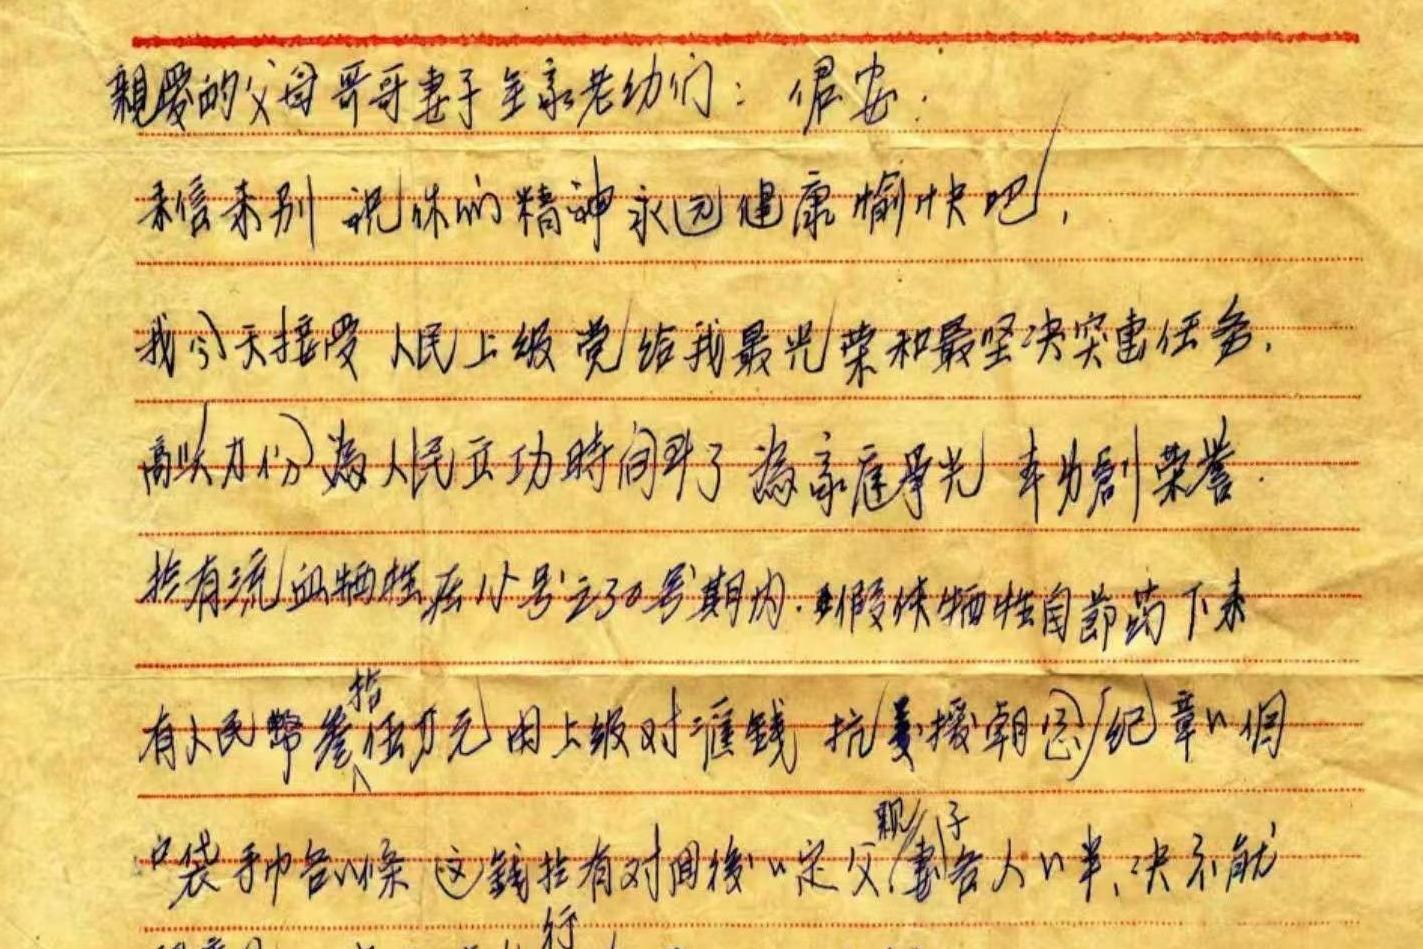 親爱的父母哥哥妻子全家老幼们：
来信来别 祝你的精神永远健康愉快吧，
我今天接受人民上级党给我最光荣和最坚决突击任务，
高兴万份 为人民立功時间到了 為家庭争光 創荣誉.
有流血牺牲在 号之30号期内. 假使牺牲自節药下来
有人民幣叁拾伍万元由上级对滙錢 抗美援朝 紀章 個
口袋手巾各 條 这錢 有对间後 定父親妻子各人 半，决不能
行